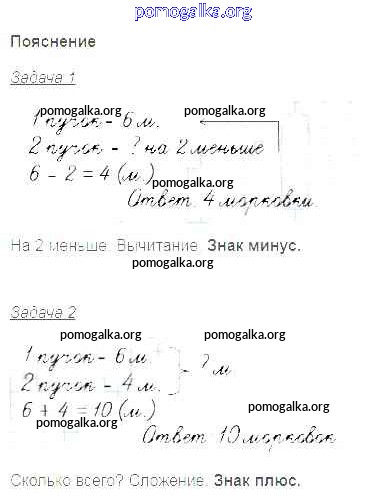 pomogalka.org
Пояснение
Задача 1
pomogalka.org pomogalka.org
1 пучок - 6 м.
2 пучок - ? на 2 меньше
pomogalka.org
6 - 2 = 4 (м.)
pomogalka.org
Ответ 4 морковки.
На 2 меньше. Вычитание. Знак минус.
pomogalka.org
Задача 2
pomogalka.org pomogalka.org
1 пучок - 6 м.
2 пучок - 4 м. - ? м
pomogalka.org
6 + 4 = 10 (м.)
pomogalka.org pomogalka.org
Ответ 10 морковок
Сколько всего? Сложение. Знак плюс.